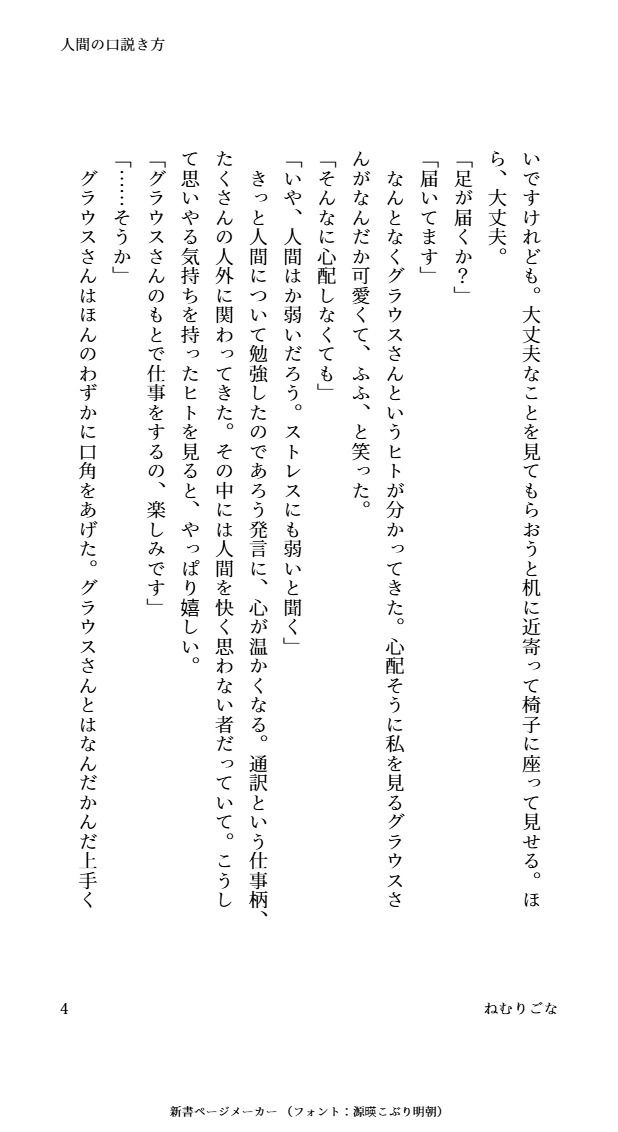 人間の口説き方
いですけれども。大丈夫なことを見てもらおうと机に近寄って椅子に座って見せる。ほ
ら、大丈夫。
「足が届くか？」
「届いてます」
　なんとなくグラウスさんというヒトが分かってきた。心配そうに私を見るグラウスさ
んがなんだか可愛くて、ふふ、と笑った。
「そんなに心配しなくても」
「いや、人間はか弱いだろう。ストレスにも弱いと聞く」
　きっと人間について勉強したのであろう発言に、心が温かくなる。通訳という仕事柄、
たくさんの人外に関わってきた。その中には人間を快く思わない者だっていて。こうし
て思いやる気持ちを持ったヒトを見ると、やっぱり嬉しい。
「グラウスさんのもとで仕事をするの、楽しみです」
「……そうか」
　グラウスさんはほんのわずかに口角をあげた。グラウスさんとはなんだかんだ上手く
4
ねむりごな
新書ページメーカー（フォント：源暎こぶり明朝）